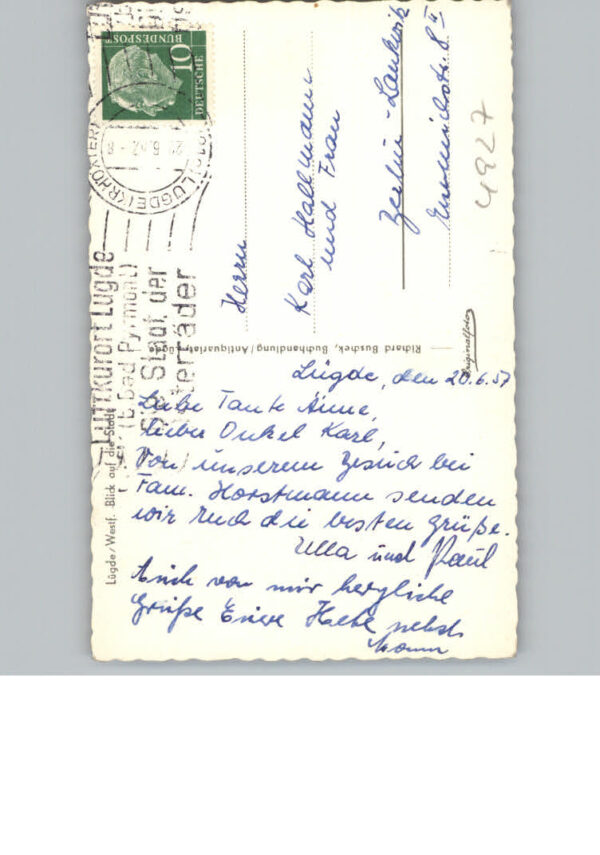 DEUTSCHE
BUNDESPOST
10
LÜGDE (KR HÖXTER)
Luftkurort Lügde
(b Bad Pyrmont)
Die Stadt der
Osterräder
Herrn
Karl Hallmann
und Frau
Berlin-Lankwitz
8 II
4927
Richard Buschek, Buchhandlung/Antiquariat, Lügde
Originalfoto
Lügde/Westf. Blick auf die Stadt
Lügde, den 20.6.57
Liebe Tante Änne,
lieber Onkel Karl,
Von unserem Besuch bei
Fam. Horstmann senden
wir Euch die besten Grüße.
Ulla und Paul
Auch von mir herzliche
Grüße Eure Käthe nebst
Mann